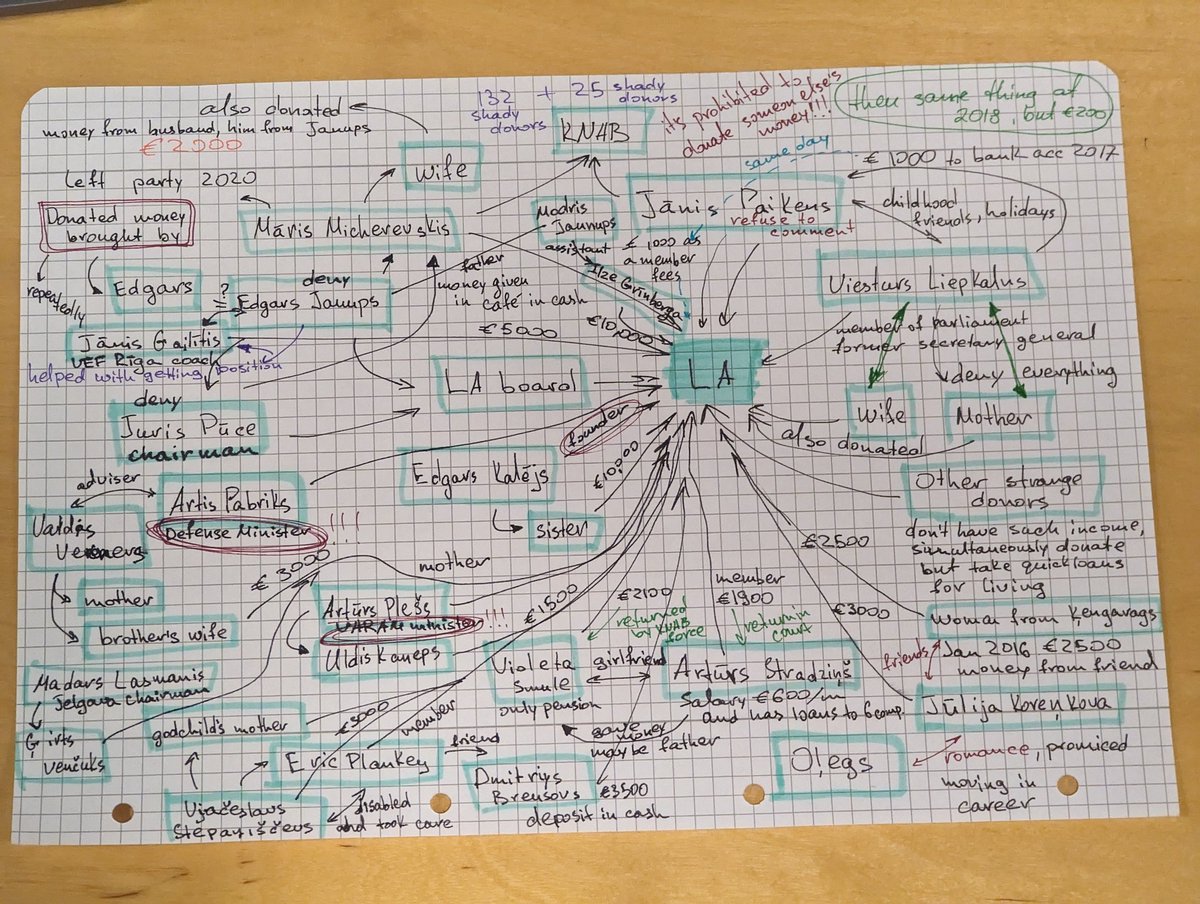 also donated
money from busband, him from Jaunups
€2000
132
shady
donors
+ 25 shady
donors
KNAB
it's prohibited to
donate someone else's
money!!!
then same thing at
2018, but €200
same day
€1000 to bank acc 2017
Left party 2020
wife
Donated money
brought by
Māris Micherevskis
Modris
Jaunups
assistant
Jānis Paikens
refuse to
comment
childhood
friends, holidays
€1000 as
a member
fees
Ilze Grinberga
Viesturs Liepkalns
repeatedly
Edgars
?
=
deny
Edgars Jaunups
father
money given
in café in cash
€5000
€10,000
Jānis Gailītis
VEF Rīga coach
helped with getting position
LA board
LA
member of parliament
former secretary general
deny everything
deny
Juris Pūce
chairman
founder
wife
Mother
also donated
adviser
Artis Pabriks
Defense Minister
!!!
Edgars Katējs
€10,00
sister
Other strange
donors
don't have such income,
simultaneously donate
but take quickloans
for living
Valdis
mother
brother's wife
€3000
mother
Artūrs Plešs
VARAM minister
!!!
Uldis Kaneps
€1500
€2100
returned
by KNAB
force
member
€1900
return in
court
€2500
€3000
Woman from Ķengarags
Jan 2016 €2500
money from friend
friends
Madars Lasmanis
Jelgava chairman
Ģirts
Venčuks
godchild's mother
€3000
member
Violeta
Smule
only pension
girlfriend
Artūrs Stradziņš
Salary €600/m
and has loans to 6 comp.
Jūlija Koreņkova
Eric Plankey
friend
same
money
maybe father
Oļegs
romance, promiced
moving in
career
Vjačeslavs
Stepaņiščevs
disabled
and took care
Dmitrijs
€3500
deposit in cash